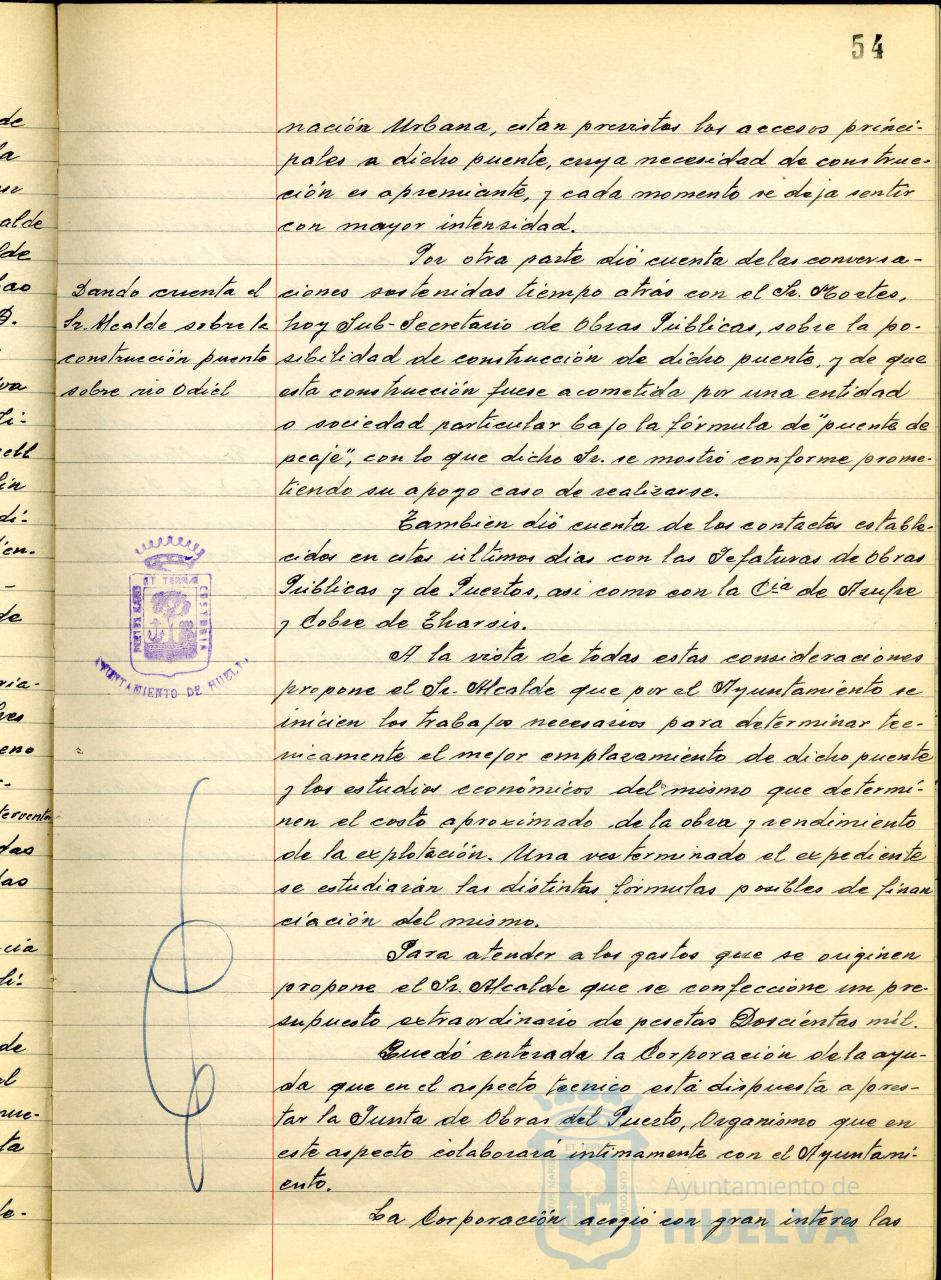 54
nación Urbana, estan previstos los accesos princi-
pales a dicho puente, cuya necesidad de construc-
ción es apremiante, y cada momento se deja sentir
con mayor intensidad.
Por otra parte dió cuenta de las conversa-
ciones sostenidas tiempo atrás con el Sr. Mortes,
hoy Sub-Secretario de Obras Públicas, sobre la po-
sibilidad de construcción de dicho puente, y de que
esta construcción fuese acometida por una entidad
o sociedad particular bajo la fórmula de "puente de
peaje", con lo que dicho Sr. se mostró conforme prome-
tiendo su apoyo caso de realizarse.
Tambien dió cuenta de los contactos estable-
cidos en estos últimos dias con las Jefaturas de Obras
Públicas y de Puertos, asi como con la Cia de Azufre
y Cobre de Tharsis.
A la vista de todas estas consideraciones
propone el Sr. Alcalde que por el Ayuntamiento se
inicien los trabajos necesarios para determinar tec-
nicamente el mejor emplazamiento de dicho puente
y los estudios económicos del mismo que determi-
nen el costo aproximado de la obra y rendimiento
de la explotación. Una vez terminado el expediente
se estudiarán las distintas fórmulas posibles de finan
ciación del mismo.
Para atender a los gastos que se originen
propone el Sr. Alcalde que se confeccione un pre-
supuesto extraordinario de pesetas Doscientas mil.
Quedó enterada la Corporación de la ayu-
da que en el aspecto tecnico está dispuesta a pres-
tar la Junta de Obras del Puerto, Organismo que en
este aspecto colaborará intimamente con el Ayuntami-
ento.
La Corporación acogió con gran interes las
Dando cuenta el
Sr. Alcalde sobre la
construcción puente
sobre rio Odiel
PORTUS MARIS ET TERRAE CUSTODIA
AYUNTAMIENTO DE HUELVA
Ayuntamiento de
HUELVA